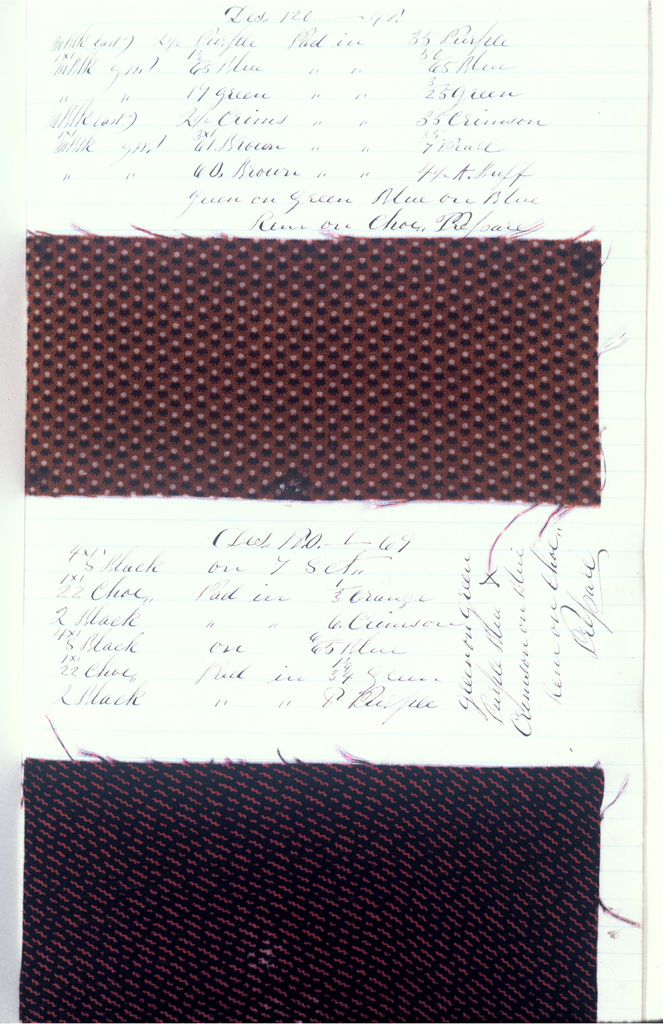 Des. 120 — 41
Blk (cast) 24 Purple Pad in 35 Purple
1x1
Blk 65 Blue " " 65 Blue
" " 17 Green " " 25 Green
Blk (cast) 24 Crims " " 35 Crimson
1x1 3x1
Blk 61 Brown " " 7
" " 60. Brown " " 44 A. Buff
Green on Green Blue on Blue
Rem on Choc,, Prepare
Des. 120. — 69
4x1
8 Black on 7
1x1
22 Choc,, Pad in 3 Orange
2 Black " " 6 Crimson
4x1
8 Black on 65 Blue
1x1
22 Choc,, Pad in 34 Green
2 Black " " 8 Purple
Green on Green
Purple Blue X
Crimson on Blue
Rem on Choc,,
Prepare